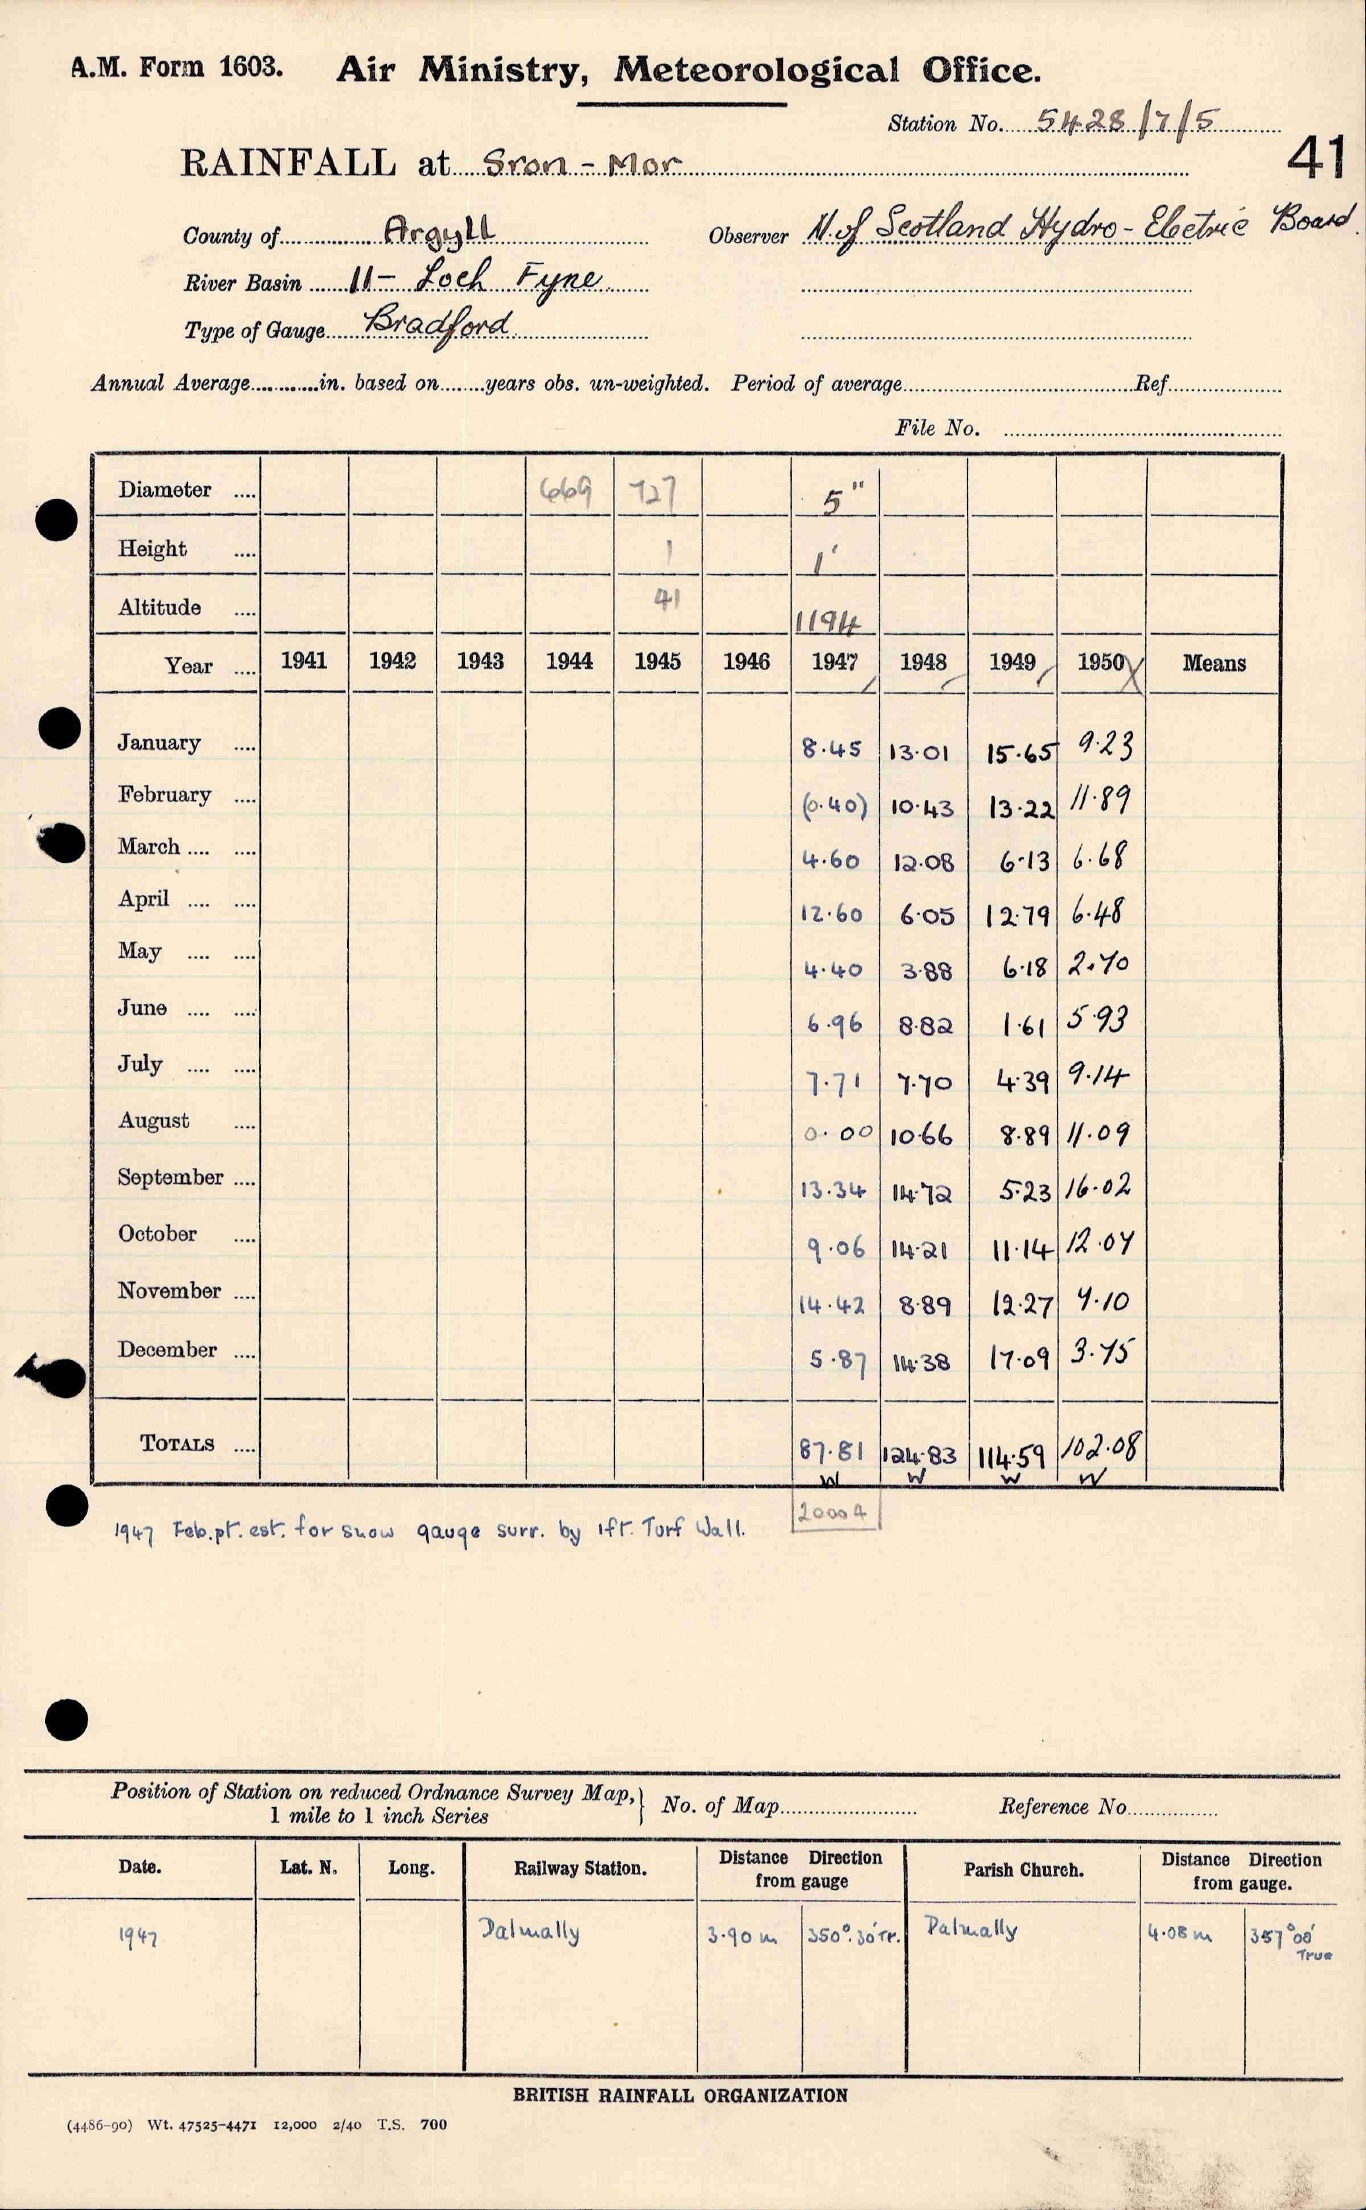 A.M. Form 1603. Air Ministry, Meteorological Office.
Station No. 5428/7/5
41
RAINFALL at Sron - Mor
County of Argyll Observer N. of Scotland Hydro - Electric Board.
River Basin 11 - Loch Fyne
Type of Gauge Bradford
Annual Average............in. based on........years obs. un-weighted. Period of average............Ref............
File No. ............
Diameter .... 669 727 5"
Height .... 1 1'
Altitude .... 41 1194
Year .... 1941 1942 1943 1944 1945 1946 1947 1948 1949 1950 Means
January .... 8.45 13.01 15.65 9.23
February .... (0.40) 10.43 13.22 11.89
March .... .... 4.60 12.08 6.13 6.68
April .... .... 12.60 6.05 12.79 6.48
May .... .... 4.40 3.88 6.18 2.70
June .... .... 6.96 8.82 1.61 5.93
July .... .... 7.71 7.70 4.39 9.14
August .... 0.00 10.66 8.89 11.09
September .... 13.34 14.72 5.23 16.02
October .... 9.06 14.21 11.14 12.07
November .... 14.42 8.89 12.27 7.10
December .... 5.87 14.38 17.09 3.75
TOTALS .... 87.81 124.83 114.59 102.08
W W W W
20004
1947 Feb. pt. est. for snow gauge surr. by 1ft. Turf Wall.
Position of Station on reduced Ordnance Survey Map, } No. of Map............ Reference No............
1 mile to 1 inch Series
Date. Lat. N. Long. Railway Station. Distance Direction from gauge Parish Church. Distance Direction from gauge.
1947 Dalmally 3.90 m 350°.30' Tr. Dalmally 4.08 m 357°00' True
BRITISH RAINFALL ORGANIZATION
(4486-90) Wt. 47525-4471 12,000 2/40 T.S. 700